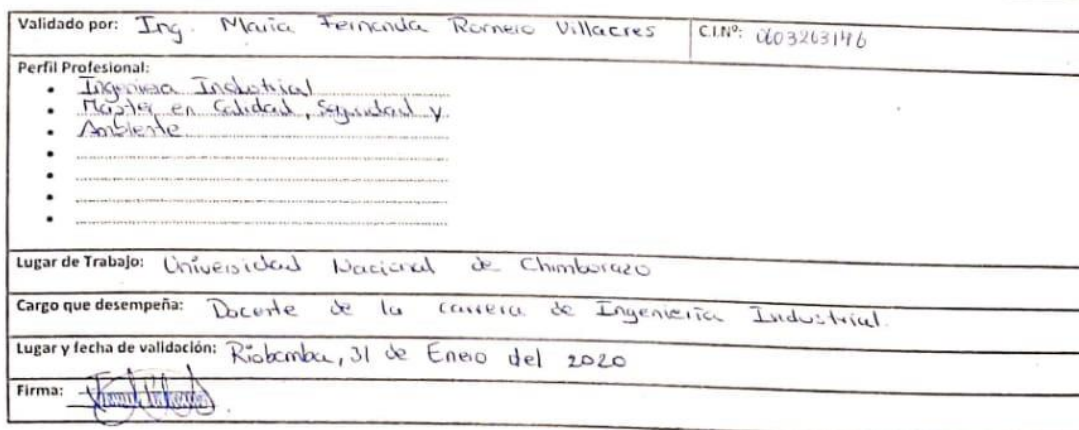 Validado por: Ing. Maria Fernanda Romero Villacres C.I.Nº: 0603263146
Perfil Profesional:
• Ingeniera Industrial
• Master en Calidad, Seguridad y
• Ambiente
•
•
•
•
Lugar de Trabajo: Universidad Nacional de Chimborazo
Cargo que desempeña: Docente de la carrera de Ingeniería Industrial.
Lugar y fecha de validación: Riobamba, 31 de Enero del 2020
Firma: